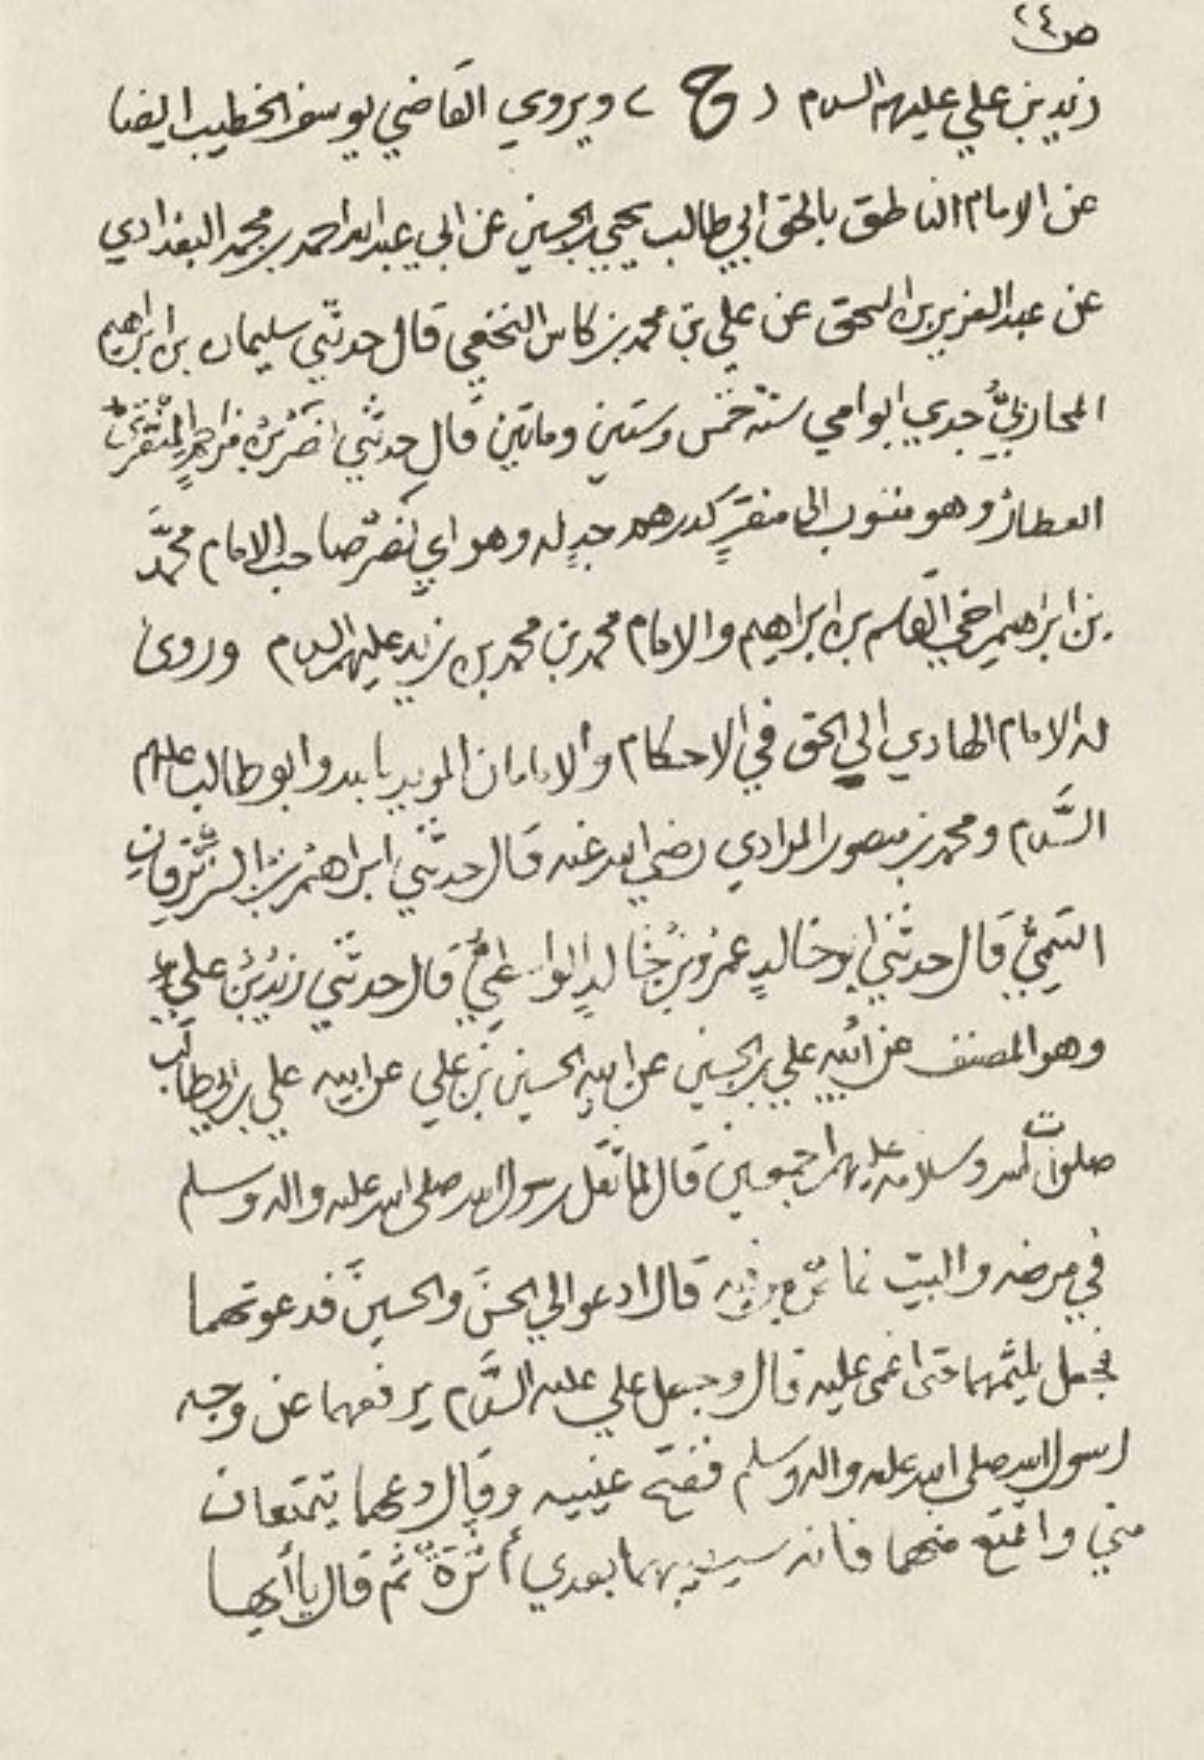 ص ٢٤
زيد بن علي عليهم السلام ( ح ) ويروي القاضي يوسف الخطيب ايضا
عن الامام الناطق بالحق ابي طالب يحيى بن الحسين عن ابي عبد الله احمد بن محمد البغدادي
عن عبد العزيز بن اسحق عن علي بن محمد بن كاس النخعي قال حدثني سليمان بن ابراهيم
المحاربيُّ جدي ابو امي سنة خمس وستين ومأتين قال حدثني نصر بن مزاحمٍ المنقريُّ
العطار وهو منسوب الى منقرٍ كدرهم جدٍ له وهو اي نصر صاحب الامام محمَّد
بن ابراهيم اخي القاسم بن ابراهيم والامام محمد بن محمد بن زيد عليهم السلام وروى
له الامام الهادي الى الحق في الاحكام والامامان المويد بالله وابو طالب عليهم
السَّلام ومحمد بن منصور المرادي رضي الله عنه قال حدثني ابراهيم بن الزبرقان
التيميُّ قال حدثني ابو خالدٍ عمرو بن خالدٍ الواسطيُّ قال حدثني زيدُ بنُ علي
وهو المصنف عن ابيه علي بن الحسين عن ابيه الحسين بن علي عن ابيه علي بن ابي طالب
صلوات الله وسلامه عليهم اجمعين قال لما ثقل رسول الله صلى الله عليه واله وسلم
في مرضه والبيت غاص بمن فيه قال ادعوا لي الحسنَ والحسينَ فدعوتهما
فجعل يلثمهما حتى اغمي عليه قال وجعل علي عليه السَّلام يرفعهما عن وجه
رسول الله صلى الله عليه واله وسلم ففتح عينيه وقال دعهما يتمتعان
مني واتمتع منهما فانه سيصيبهما بعدي أثرةٌ ثم قال يا أيها